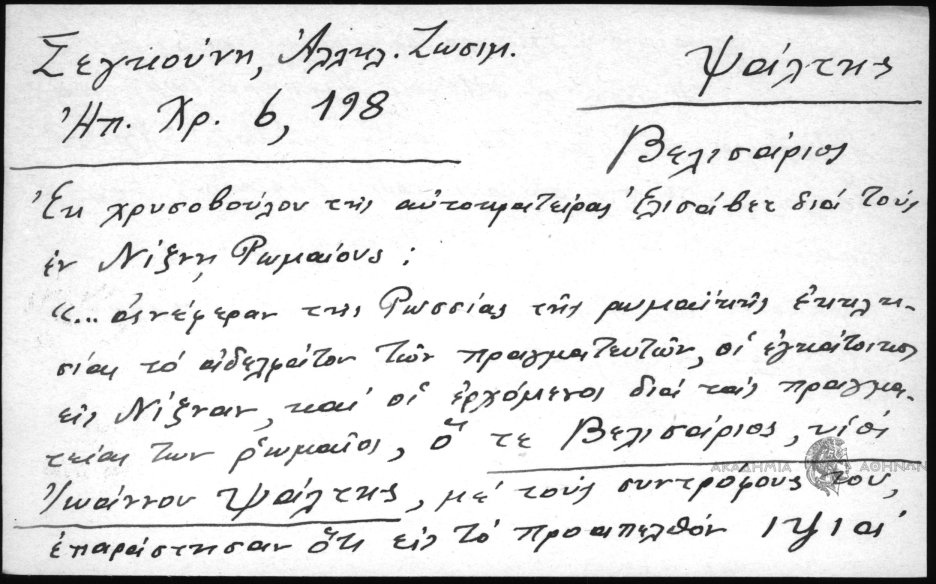 Σεγκούνη, Ἀλληλ. Ζωσιμ.
Ἠπ. Χρ. 6, 198
Ψάλτης
Βελισάριος
Ἐκ χρυσοβούλου τῆς αὐτοκρατείρας Ἐλισάβετ διά τούς
ἐν Νίζνῃ Ρωμαίους:
"... ἀνέφεραν τῆς Ρωσσίας τῆς ρωμαϊκῆς ἐκκλη-
σίας τό ἀδελφάτον τῶν πραγματευτῶν, οἱ ἐγκάτοικοι
εἰς Νίζναν, καί οἱ ἐρχόμενοι διά ταῖς πραγμα-
τείαις των ῥωμαῖοι, ὅ τε Βελισάριος, υἱός
Ἰωάννου Ψάλτης, μέ τούς συντρόφους του,
ἐπαράστησαν ὅτι εἰς τό προαπελθόν
ΑΚΑΔΗΜΙΑ ΑΘΗΝΩΝ